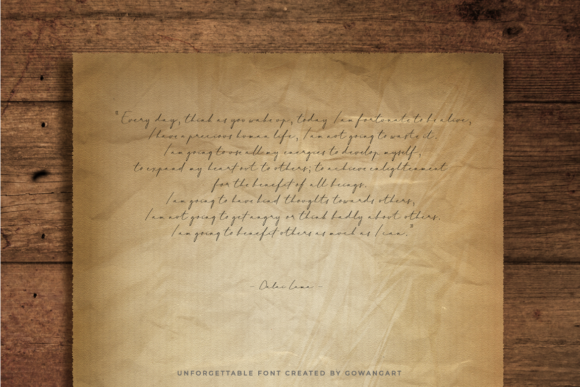 "Every day, think as you wake up, today I am fortunate to be alive,
I have a precious human life, I am not going to waste it.
I am going to use all my energies to develop myself,
to expand my heart out to others; to achieve enlightenment
for the benefit of all beings.
I am going to have kind thoughts towards others,
I am not going to get angry or think badly about others.
I am going to benefit others as much as I can."
- Dalai Lama -
UNFORGETTABLE FONT CREATED BY GOWANGART